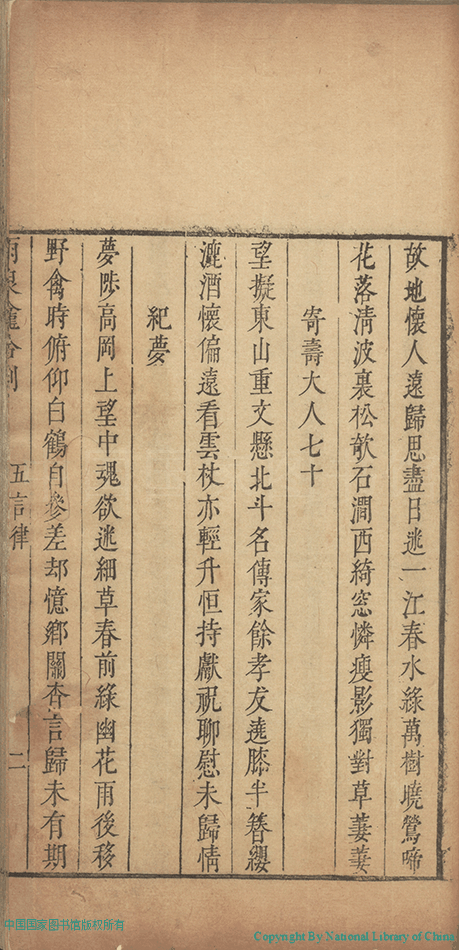 故地懷人遠歸思盡日迷一江春水綠萬樹曉鶯啼
花落清波裏松欹石澗西綺窓憐瘦影獨對草萋萋
寄壽大人七十
望擬東山重文懸北斗名傳家餘孝友遶膝半簪纓
漉酒懷偏遠看雲杖亦輕升恒持獻祝聊慰未歸情
紀夢
夢陟高岡上望中魂欲迷細草春前綠幽花雨後移
野禽時俯仰白鶴自參差却憶鄉關杳言歸未有期
五言律
二
中国国家图书馆版权所有
Copyright By National Library of China